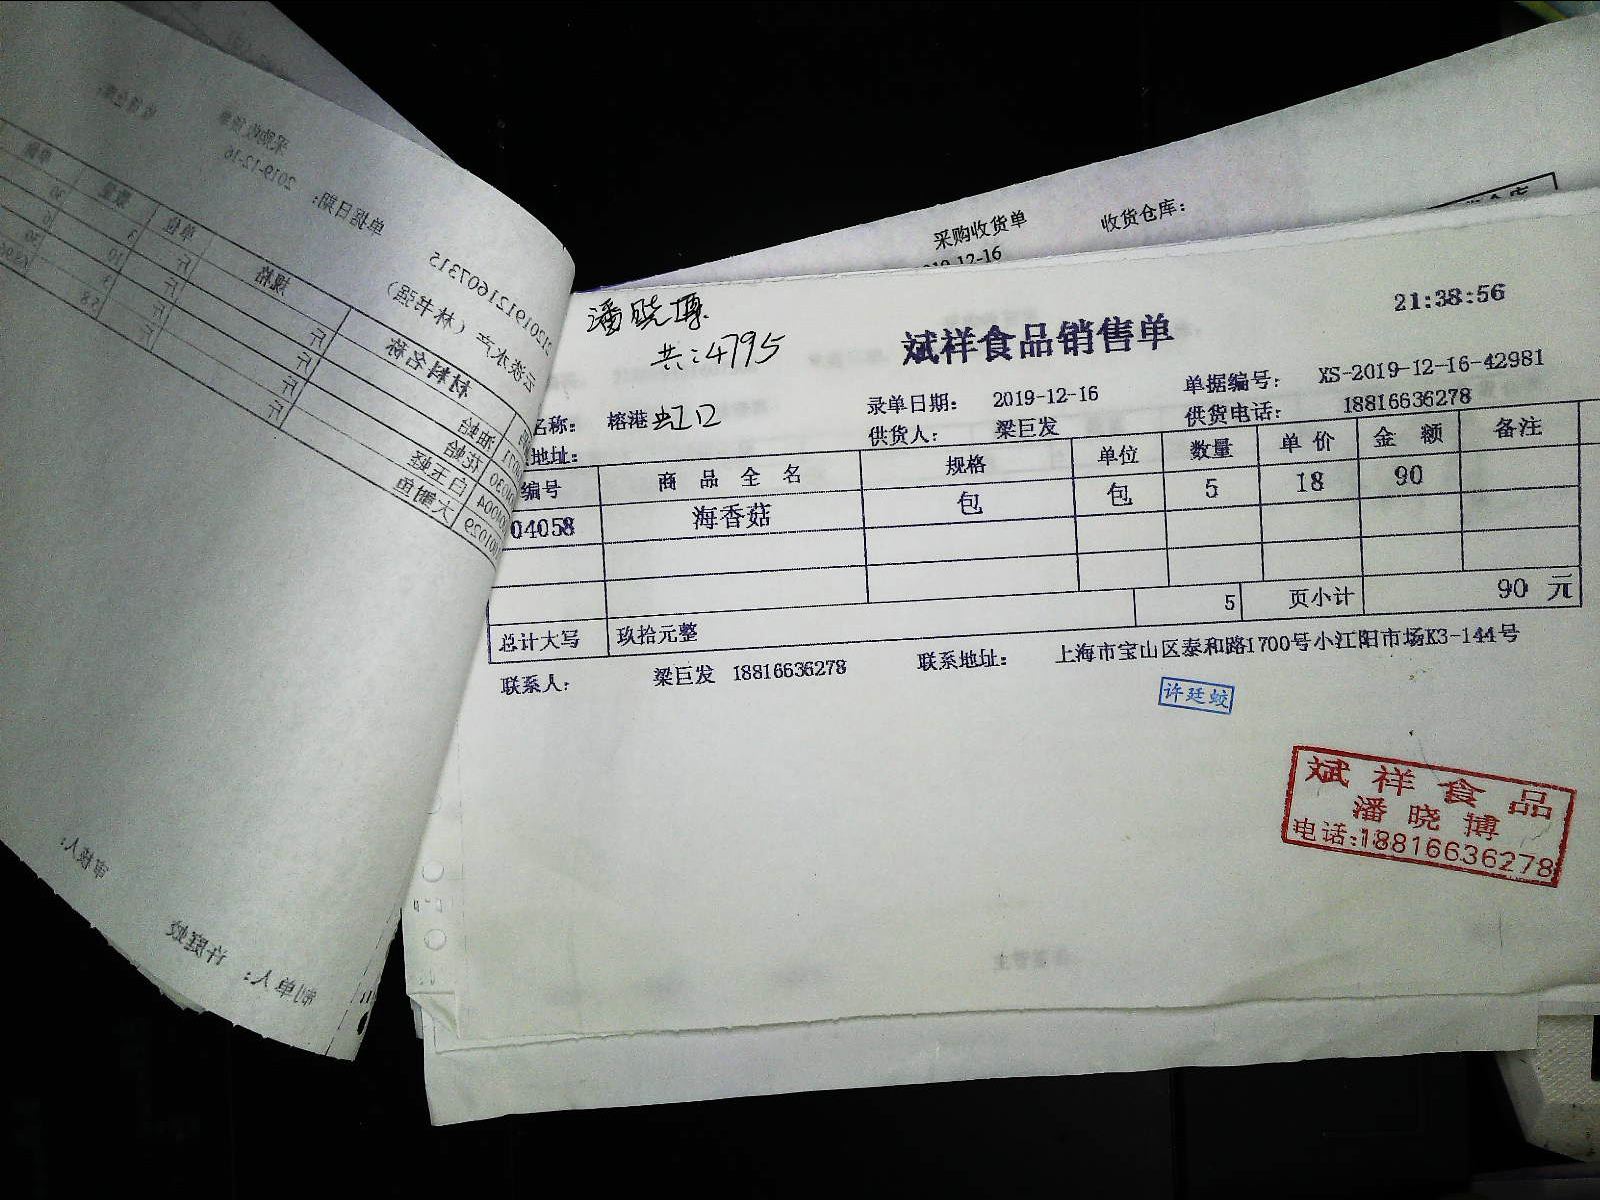 采购收货单
收货仓库：
潘晓博
共：4795
斌祥食品销售单
21:38:56
名称： 榕港虹口
录单日期： 2019-12-16
单据编号： XS-2019-12-16-42981
地址：
供货人： 梁巨发
供货电话： 18816636278
编号 商品全名 规格 单位 数量 单价 金额 备注
04058 海香菇 包 包 5 18 90
5 页小计 90 元
总计大写 玖拾元整
联系人： 梁巨发 18816636278 联系地址： 上海市宝山区泰和路1700号小江阳市场K3-144号
许廷蛟
斌祥食品
潘晓博
电话:18816636278
单据日期： 2019-12-16
材料名称 规格 单位 数量
审核人：
制单人： 许廷蛟